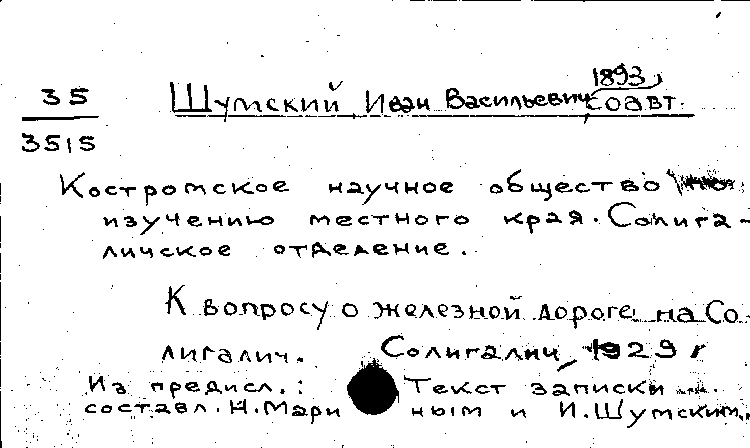 1893,
35 Шумский, Иван Васильевич, соавт.
3515
Костромское научное общество по
изучению местного края. Солига-
личское отделение.
К вопросу о железной дороге на Со
лигалич. Солигалич, 1929 г
Из предисл.: Текст записки
составл. Н. Мари ным и И. Шумским.